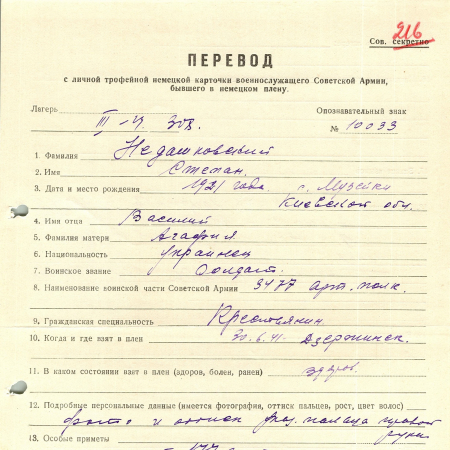 216
Сов. секретно
ПЕРЕВОД
с личной трофейной немецкой карточки военнослужащего Советской Армии,
бывшего в немецком плену.
Лагерь Опознавательный знак
III № 10033
1. Фамилия Недашковский
2. Имя Степан.
3. Дата и место рождения 1921 года. с. Музейки
Киевской обл.
4. Имя отца Василий
5. Фамилия матери Агафия
6. Национальность Украинец
7. Воинское звание Солдат.
8. Наименование воинской части Советской Армии 3477 арт. полк.
9. Гражданская специальность Крестьянин
10. Когда и где взят в плен 30.6.41. Дзержинск.
11. В каком состоянии взят в плен (здоров, болен, ранен) здоров.
12. Подробные персональные данные (имеется фотография, оттиск пальцев, рост, цвет волос)
фото и оттиск указ. пальца правой
руки
13. Особые приметы